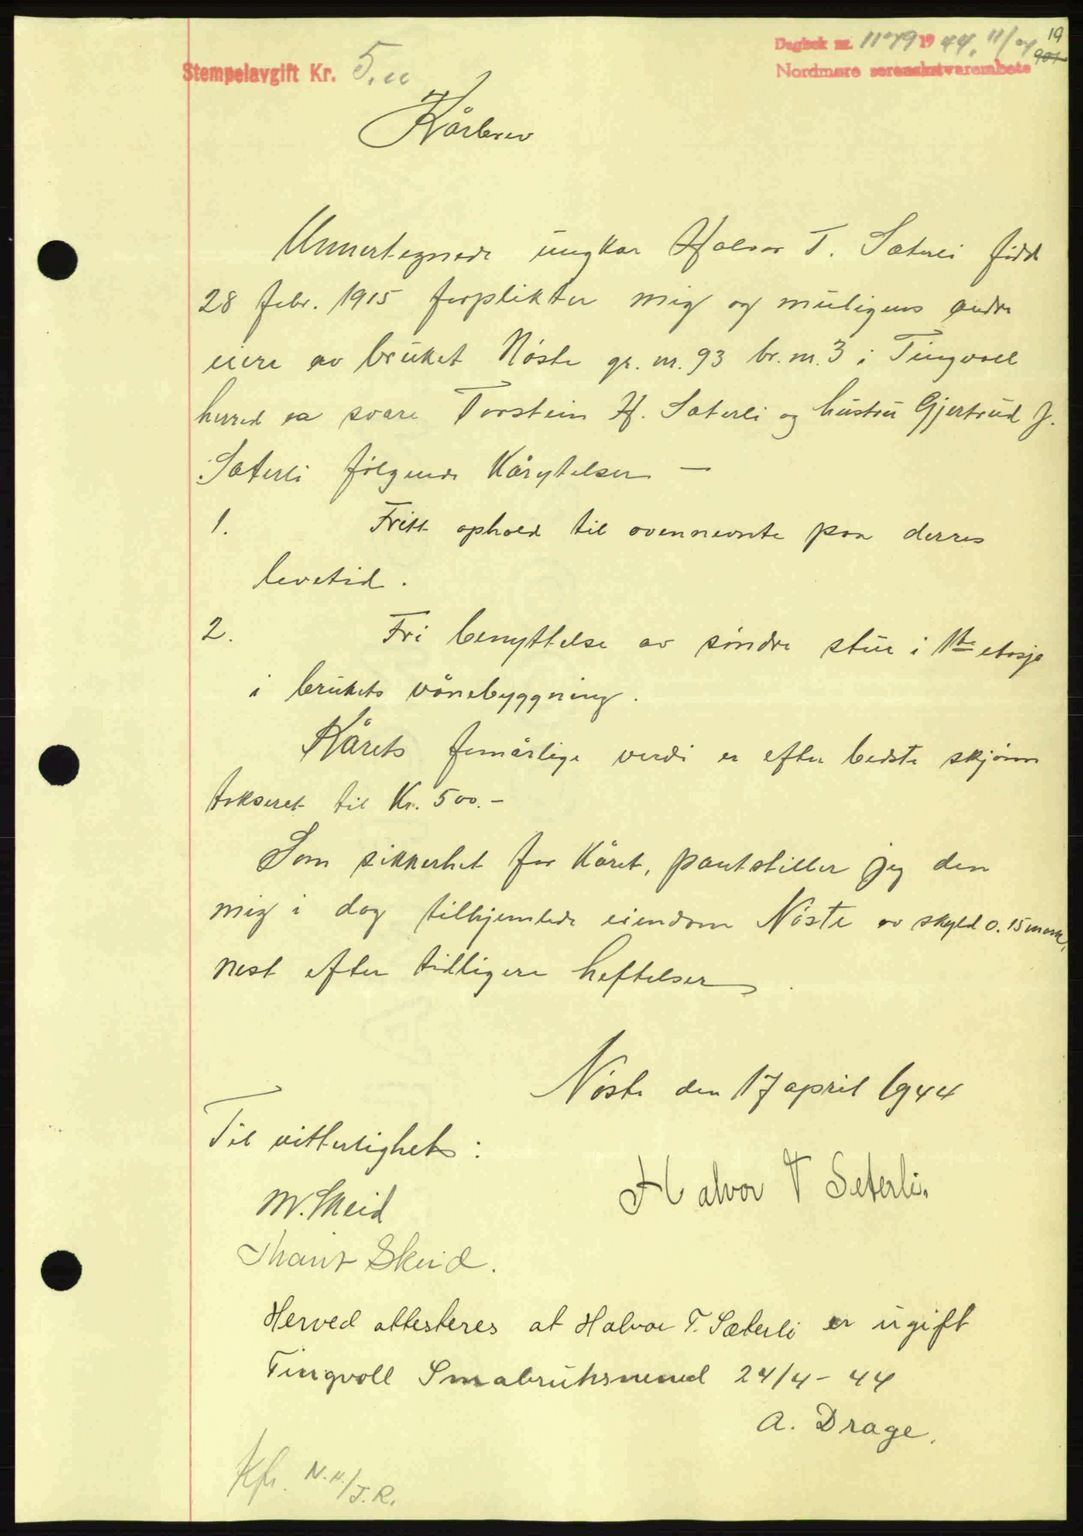 Dagbok nr. 1179 19 44, 11/
19
901
Stempelavgift Kr. 5,00
Nordmøre sorenskriverembete
Kårbrev
Unnertegnede ungkar Halvor T. Sæterli född
28 febr. 1915 forplikter mig og muligens andre
eiere av bruket Nöste gr. nr. 93 br. nr. 3 i Tingvoll
herred å svare Torstein H. Sæterli og hustru Gjertrud J.
Sæterli fölgende Kårytelser —
1. Fritt ophold til ovennevnte paa derres
levetid.
2. Fri benyttelse av söndre stue i 1ste etasje
i brukets vånebyggning.
Kårets femårlige verdi er efter bedste skjönn
takseret til Kr. 500.-
Som sikkerhet for Kåret, pantstiller jeg den
mig i dag tilhjemlede eiendom Nöste av skyld 0.15 mark,
nest efter tidligere heftelser.
Nöste den 17 april 1944
Til vitterlighet:
Halvor T Seterli.
M. Skeid
Skeid.
Herved attesteres at Halvor T. Sæterli er ugift
Tingvoll Småbruksnemd 24/4 - 44
A. Drage.
Kfr. N.M./J.R.